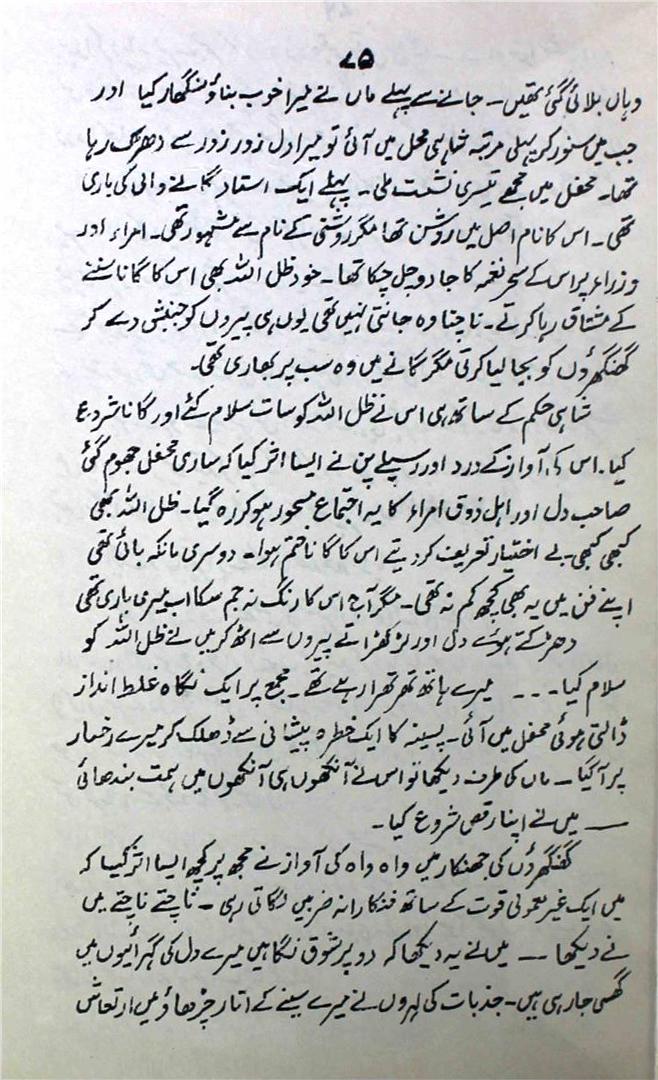 ۷۵
وہاں بلائی گئی تھیں۔ جانے سے پہلے ماں نے میرا خوب بناؤ سنگھار کیا اور
جب میں سنور کر پہلی مرتبہ شاہی محل میں آئی تو میرا دل زور زور سے دھڑک رہا
تھا۔ محفل میں مجھے تیسری نشست ملی۔ پہلے ایک استاد گانے والی کی باری
تھی۔ اس کا نام اصل میں روشن تھا مگر روشنی کے نام سے مشہور تھی۔ امراء اور
وزراء پر اس کے سحر نغمہ کا جادو چل چکا تھا۔ خود ظل اللہ بھی اس کا گانا سننے
کے مشتاق رہا کرتے۔ ناچنا وہ جانتی نہیں تھی یوں ہی پیروں کو جنبش دے کر
گھنگھروں کو بجا لیا کرتی مگر گانے میں وہ سب پر بھاری تھی۔
شاہی حکم کے ساتھ ہی اس نے ظل اللہ کو سات سلام کئے اور گانا شروع
کیا۔ اس کی آواز کے درد اور رسیلے پن نے ایسا اثر کیا کہ ساری محفل جھوم گئی
صاحب دل اور اہل ذوق امراء کا یہ اجتماع مسحور ہو کر رہ گیا۔ ظل اللہ بھی
کبھی کبھی بے اختیار تعریف کر دیتے اس کا گانا ختم ہوا۔ دوسری بانکہ بائی تھی
اپنے فن میں یہ بھی کچھ کم نہ تھی۔ مگر آج اس کا رنگ نہ جم سکا اب میری باری تھی
دھڑکتے ہوئے دل اور لڑکھڑاتے پیروں سے اٹھ کر میں نے ظل اللہ کو
سلام کیا۔۔۔ میرے ہاتھ تھرتھرا رہے تھے۔ مجمع پر ایک نگاہ غلط انداز
ڈالتی ہوئی محفل میں آئی۔ پسینہ کا ایک خطرہ پیشانی سے ڈھلک کر میرے رخسار
پر آگیا۔ ماں کی طرف دیکھا تو اس نے آنکھوں ہی آنکھوں میں ہمت بندھائی
— میں نے اپنا رقص شروع کیا۔
گھنگھروں کی جھنکار میں واہ واہ کی آواز نے مجھ پر کچھ ایسا اثر کیا کہ
میں ایک غیر معمولی قوت کے ساتھ فنکارانہ ضربیں لگاتی رہی۔ ناچتے ناچتے میں
نے دیکھا — میں نے یہ دیکھا کہ دو پر شوق نگاہیں میرے دل کی گہرائیوں میں
گھسی جا رہی ہیں۔ جذبات کی لہروں نے میرے سینے کے اتار چڑھاؤ میں ارتعاش